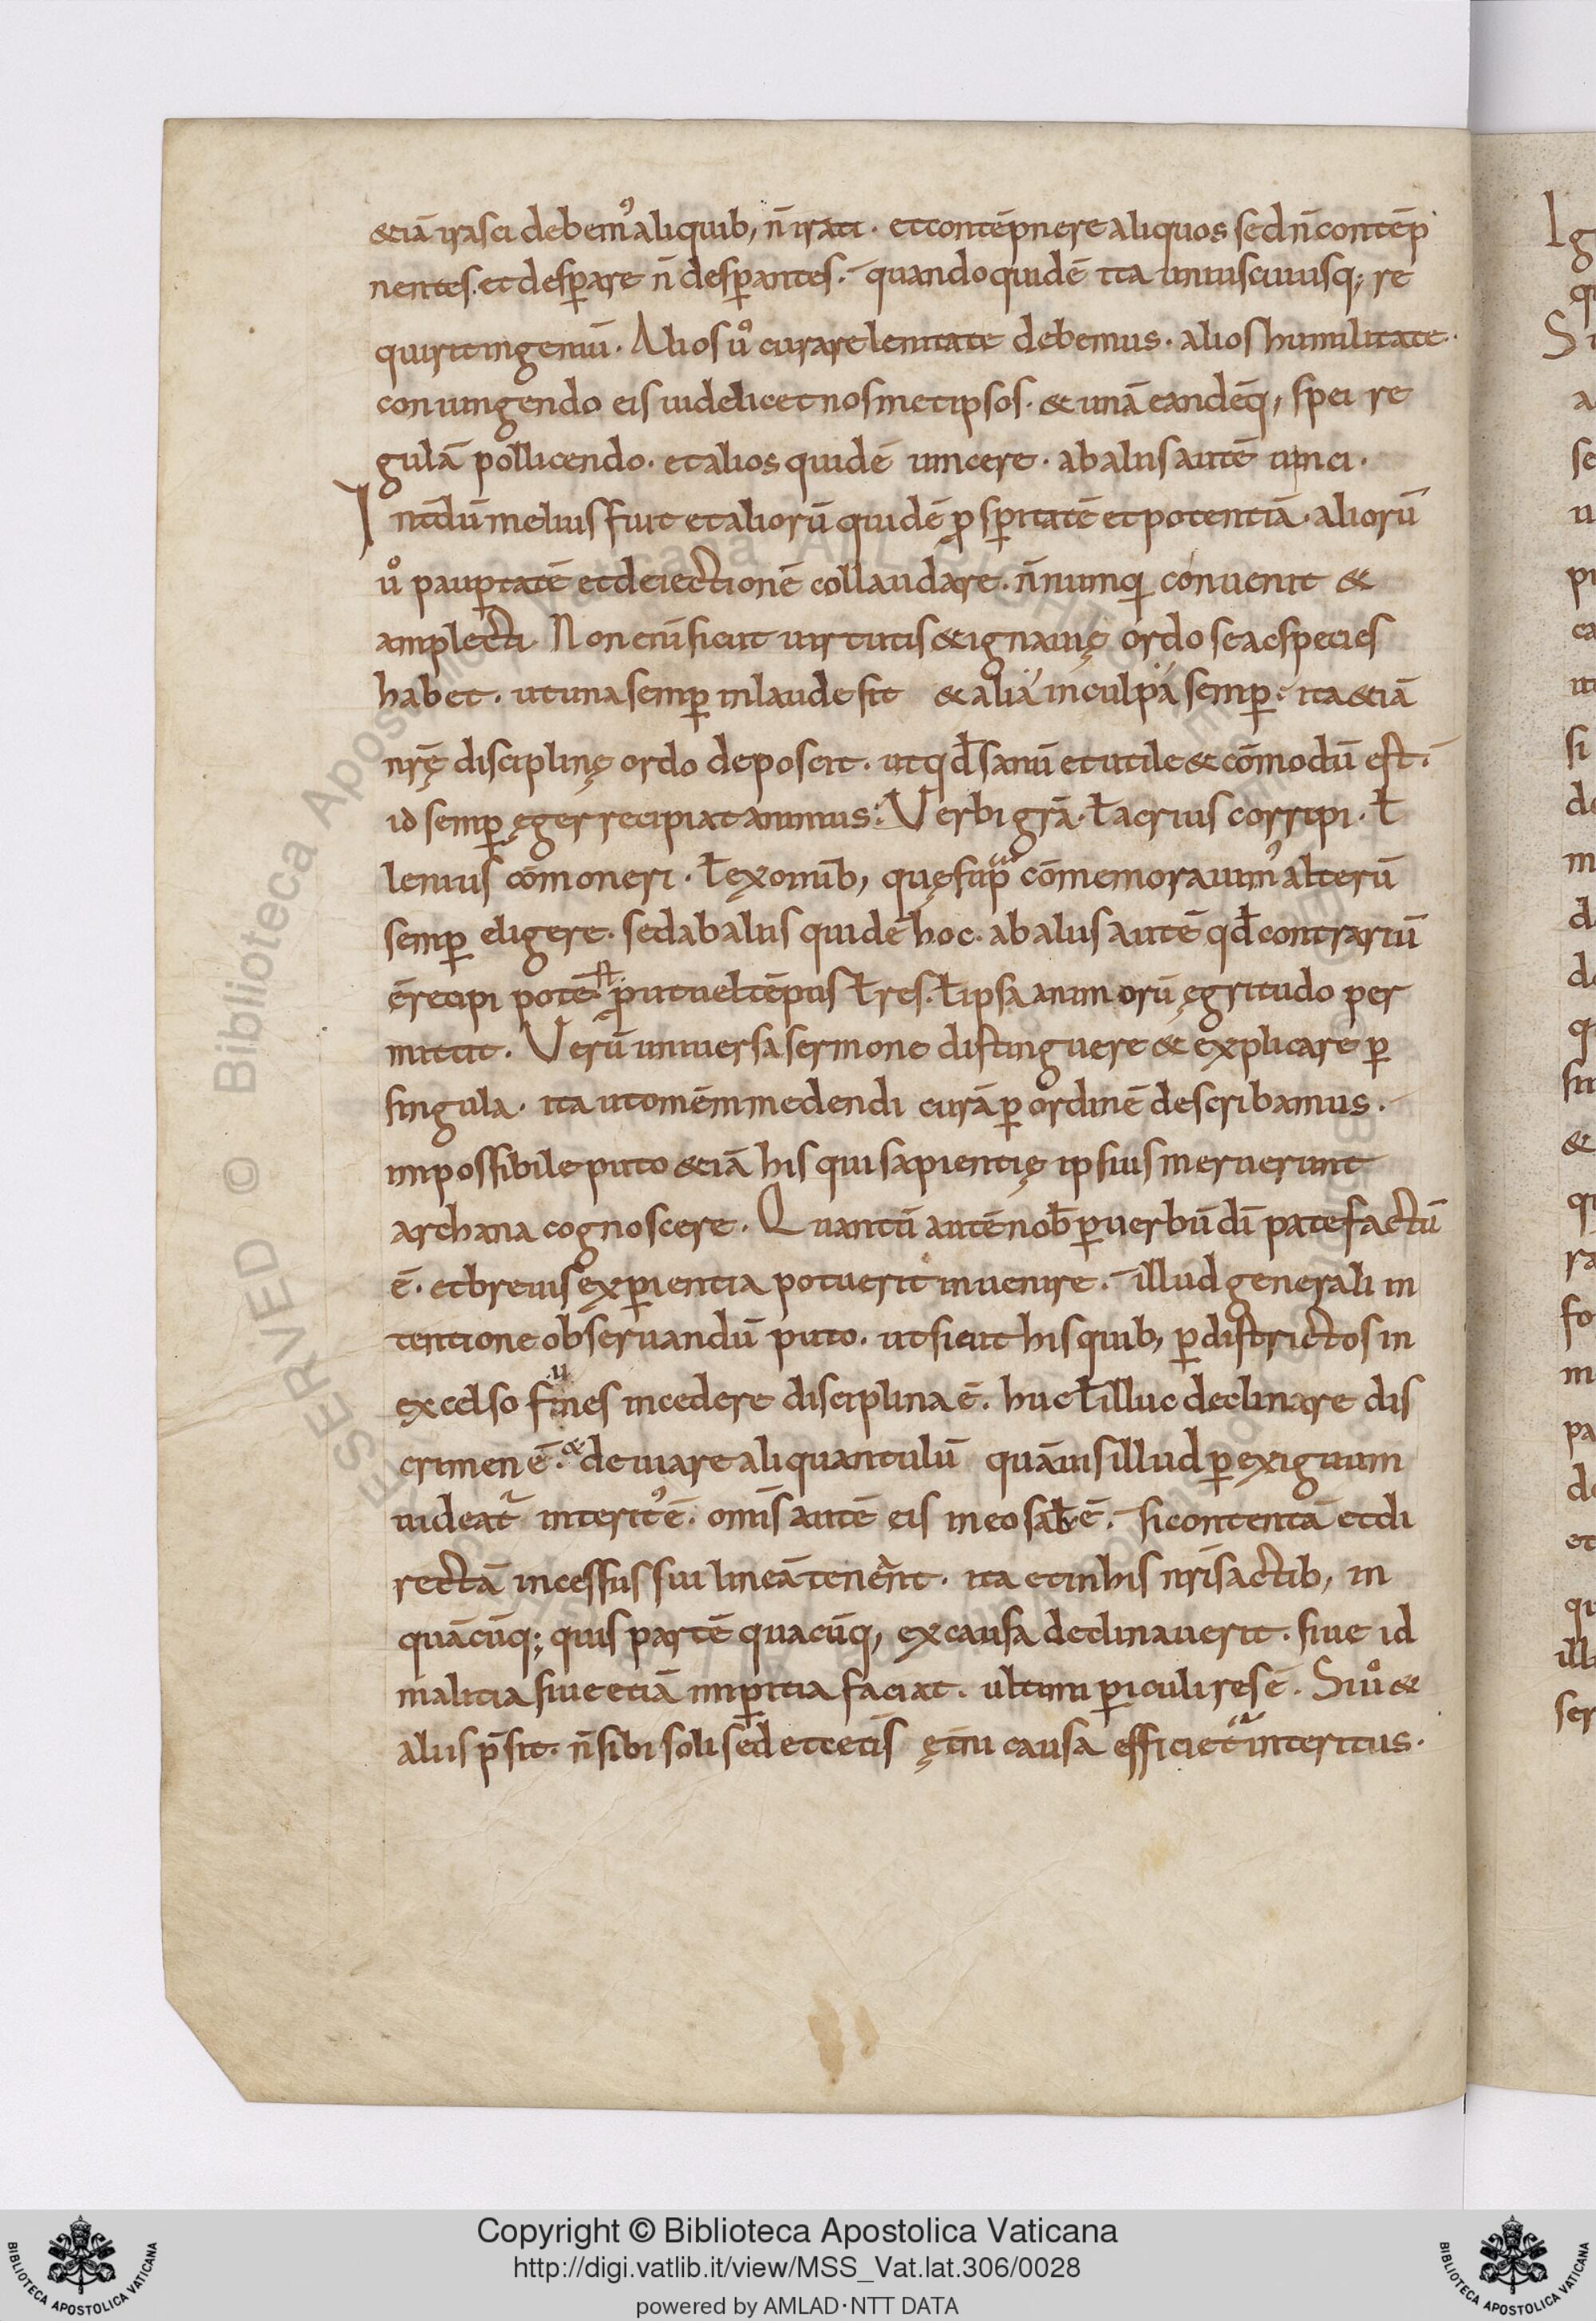 &iā irasci debem᾿ aliquib, n̄ irati · et contēpnere aliquos sed n̄ contēp
nentes. et desꝑare n̄ desꝑantes. quandoquidē ita uniuscuiusq; re
quirit ingeniū. Alios uͦ curare lenitate debemus. alios humilitate.
coniungendo eis uidelicet nosmet ipsos. & unā eandēq, spei re
gulā pollicendo. et alios quidē uincere. ab aliis autē uinci.
Int̄dū melius fuit et aliorū quidē ꝓsꝑitatē et potentiā. aliorū
uͦ pauꝑtatē et deiectionē collaudare. n̄ numqͥ conuenit &
amplecti. Non enī sicut uirtutis & ignauię ordo se ac species
habet. ut una semꝑ in laude sit & alia in culpa semꝑ. ita &iā
nr̄ę disciplinę ordo deposcit. ut qd̄ sanū et utile & cōmodū est.
id semꝑ ęger recipiat animus. Verbi grā. ł acrius corripi. ł
lenius cōmoneri. ł ex omīb, quę supᵃ cōmemorauim᾿ alterū
semꝑ eligere. sed ab aliis quidē hoc. ab aliis autē qd̄ contrariū
ē recipi potē st. ꝓut uel tēpus ł res. ł ipsa animorū ęgritudo per
mittit. Verū uniuersa sermone distinguere & explicare ꝑ
singula. ita ut omēm medendi curā ꝑ ordinē describamus.
impossibile puto &iā his qui sapientię ipsius meruerunt
archana cognoscere. Quantū autē nob̄ ꝑ uerbū dī patefactū
ē. et breuis exꝑientia potuerit inuenire. illud generali in
tentione obseruandū puto. ut sicut his quib, ꝑ districtos in
excelso funes incedere disciplina ē. huc ł illuc declinare dis
crimen ē. & deuiare aliquantulū quāuis illud ꝑexiguum
uideat᷑ interit᾿ ē. omīs autē eis in eo salꝰ ē. si contentā et di
rectā incessus sui lineā tenēnt. ita et in his nr̄is actib, in
quācūq; quis partē quacūq, ex causa declinauerit. siue id
malitia siue etiā imꝑitia faciat. ultimi ꝑiculi res ē. Si uͦ &
aliis p̄sit. n̄ sibi soli sed et cet̄is ęt̄ni causa efficiet᷑ interitus.
Copyright © Biblioteca Apostolica Vaticana
http://digi.vatlib.it/view/MSS_Vat.lat.306/0028
powered by AMLAD·NTT DATA
BIBLIOTECA APOSTOLICA VATICANA
BIBLIOTECA APOSTOLICA VATICANA